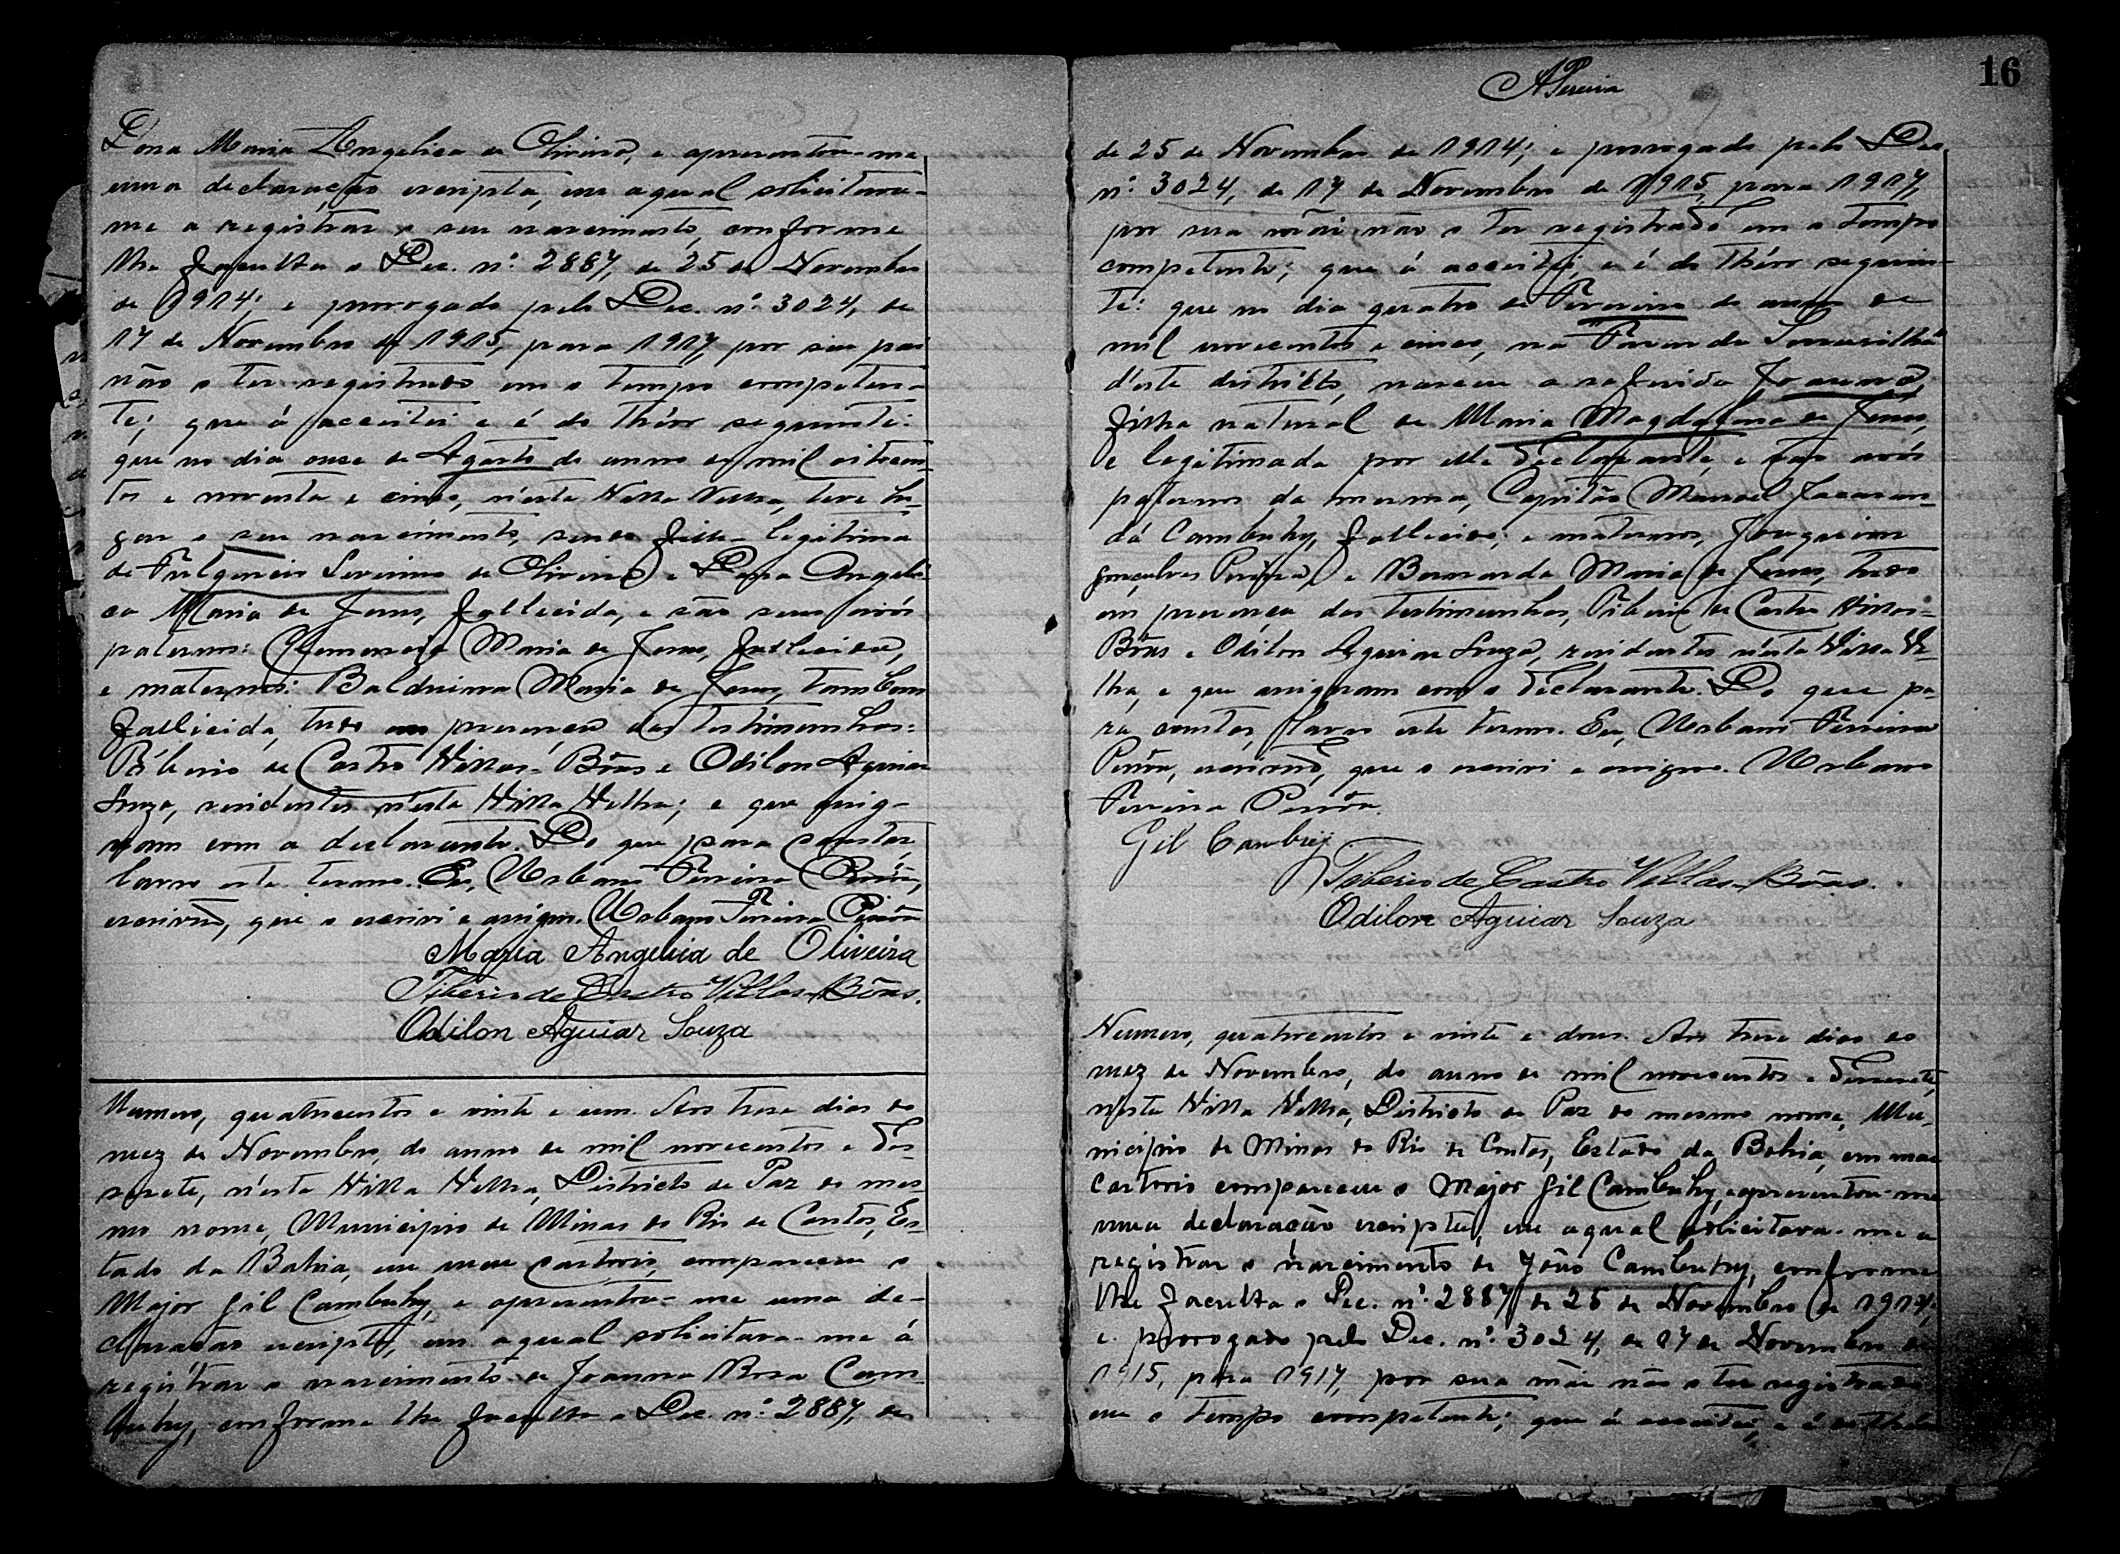 Dona Maria Angelica de Oliveira, e apresentou-me
uma declaração escripta, em a qual solicitava-
me a registrar o seu nascimento, conforme
lhe faculta o Dec. nº 2887, de 25 de Novembro
de 1914; e prorogado pelo Dec. nº 3024, de
17 de Novembro de 1915, para 1917, por seu pai
não o ter registrado em o tempo competen-
te; que á acceitei e é do theor seguinte:
que no dia onze de Agosto do anno de mil oitocen-
tos e noventa e cinco, n'esta Villa Velha, teve lu-
gar o seu nascimento, sendo filha legitima
de Fulgencio Severino de Oliveira e Dona Angeli-
ca Maria de Jesus, fallecida, e são seus avós
paternos: Clemencia Maria de Jesus, fallecida,
e maternos: Balduina Maria de Jesus, tambem
fallecida, tudo em presença das testimunhas:
Tiberio de Castro Villas-Bôas e Odilon Aguiar
Souza, residentes n'esta Villa Velha; e que assig-
nam com a declarante. Do que para constar,
lavro este termo. Eu, Urbano Ferreira
escrivão, que o escrivi e assigno. Urbano Ferreira
Maria Angelica de Oliveira
Tiberio de Castro Villas-Bôas.
Odilon Aguiar Souza
Numero, quatrocentos e vinte e um. Aos treze dias do
mez de Novembro, do anno de mil novecentos e dez-
esete, n'esta Villa Velha, Districto de Paz do mes-
mo nome, Municipio de Minas do Rio de Contas, Es-
tado da Bahia, em meu cartorio, compareceu o
Major Gil Cambuhy, e apresentou-me uma de-
claração escripta, em a qual solicitava-me á
registrar o nascimento de Joanna Rosa Cam-
buhy, conforme lhe faculta o Dec. nº 2887, de
16
APereira
de 25 de Novembro de 1914; e prorogado pelo Dec.
nº 3024, de 17 de Novembro de 1915, para 1917,
por sua mãi não o ter registrado em o tempo
competente; que á acceitei, e é do théor seguin-
te: que no dia quatro de Fevereiro do anno de
mil novecentos e cinco, na Fazenda
d'este districto, nasceu a referida Joanna,
filha natural de Maria Magdalena de Jesus,
e legitimada por elle declarante, e são avós
paternos da mesma, Capitão Manoel Jacaran-
dá Cambuhy, fallecido; e maternos, Joaquim
Gonçalves Pereira, e Bernarda Maria de Jesus, tudo
em presença das testimunhas, Tiberio de Castro Villas-
Bôas e Odilon Aguiar Souza, residentes n'esta Villa Ve-
lha, e que assignam com o declarante. Do que pa-
ra constar, lavro este termo. Eu, Urbano Ferreira
escrivão, que o escrivi e assigno. Urbano
Ferreira
Gil Cambuy
Tiberio de Castro Villas-Bôas.
Odilon Aguiar Souza
Numero, quatrocentos e vinte e dous. Aos treze dias do
mez de Novembro, do anno de mil novecentos e dezesete,
n'esta Villa Velha, Districto de Paz do mesmo nome, Mu-
nicipio de Minas do Rio de Contas, Estado da Bahia, em meu
cartorio compareceu o Major Gil Cambuhy, e apresentou-me
uma declaração escripta, em a qual solicitava-me a
registrar o nascimento de João Cambuhy, conforme
lhe faculta o Dec. nº 2887 de 25 de Novembro de 1914;
e prorogado pelo Dec. nº 3024, de 17 de Novembro de
1915, para 1917, por sua mãi não o ter registrado
em o tempo competente; que á acceitei, e é do théor